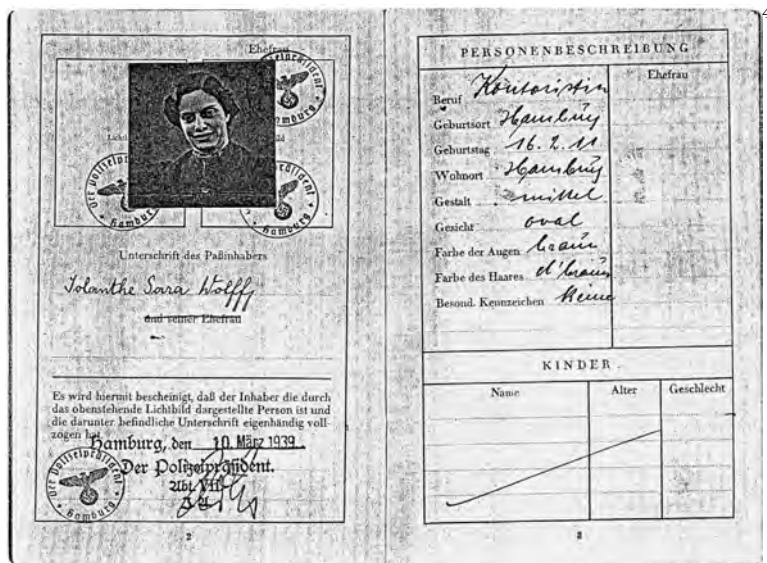 4
Ehefrau
Der Polizeipräsident
Hamburg
Der Polizeipräsident
Hamburg
Unterschrift des Paßinhabers
Iolanthe Sara Wolff
und seiner Ehefrau
Es wird hiermit bescheinigt, daß der Inhaber die durch
das obenstehende Lichtbild dargestellte Person ist und
die darunter befindliche Unterschrift eigenhändig voll-
zogen hat
Hamburg, den 10. März 1939.
Der Polizeipräsident.
Abt. VII
Der Polizeipräsident
Hamburg
2
PERSONENBESCHREIBUNG
Ehefrau
Beruf Kontoristin
Geburtsort Hamburg
Geburtstag 16.2.11
Wohnort Hamburg
Gestalt mittel
Gesicht oval
Farbe der Augen braun
Farbe des Haares d'braun
Besond. Kennzeichen Keine
KINDER
Name Alter Geschlecht
3